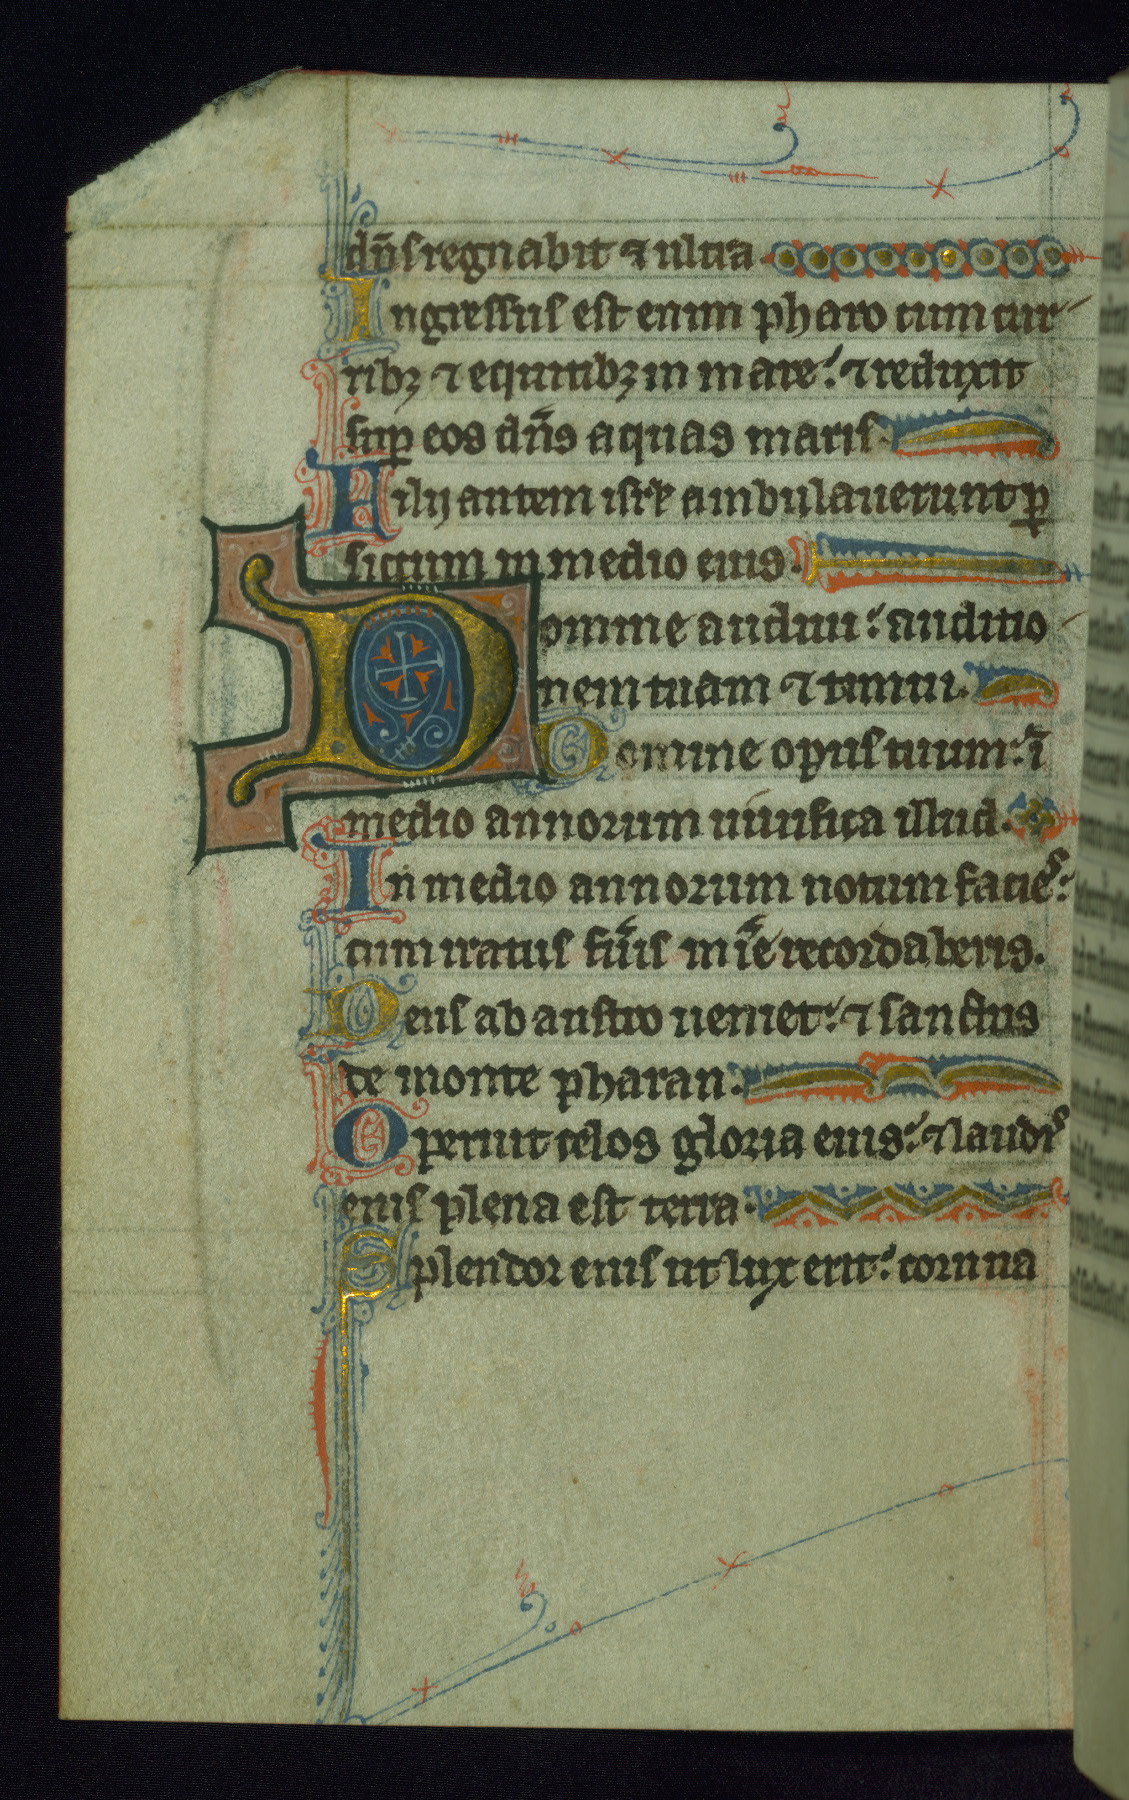 dn̄s regnabit ⁊ ultra
Ingressus est enim pharo cum cur
ribꝫ ⁊ equitibꝫ in mare: ⁊ reduxit
sup̄ eos dn̄s aquas maris.
Filij autem isrł ambulauerunt p̄
siccum in medio eius.
Domine audiui: auditio
nem tuam ⁊ timui.
Domine opus tuum: ī
medio annorum uiuifica illud.
In medio annorum notum facies:
cum iratus fūis mīe recordaberis.
Deus ab austro ueniet: ⁊ sanctus
de monte pharan:
Operuit celos gloria eius: ⁊ laudis
eius plena est terra.
Splendor eius ut lux erit: cornua